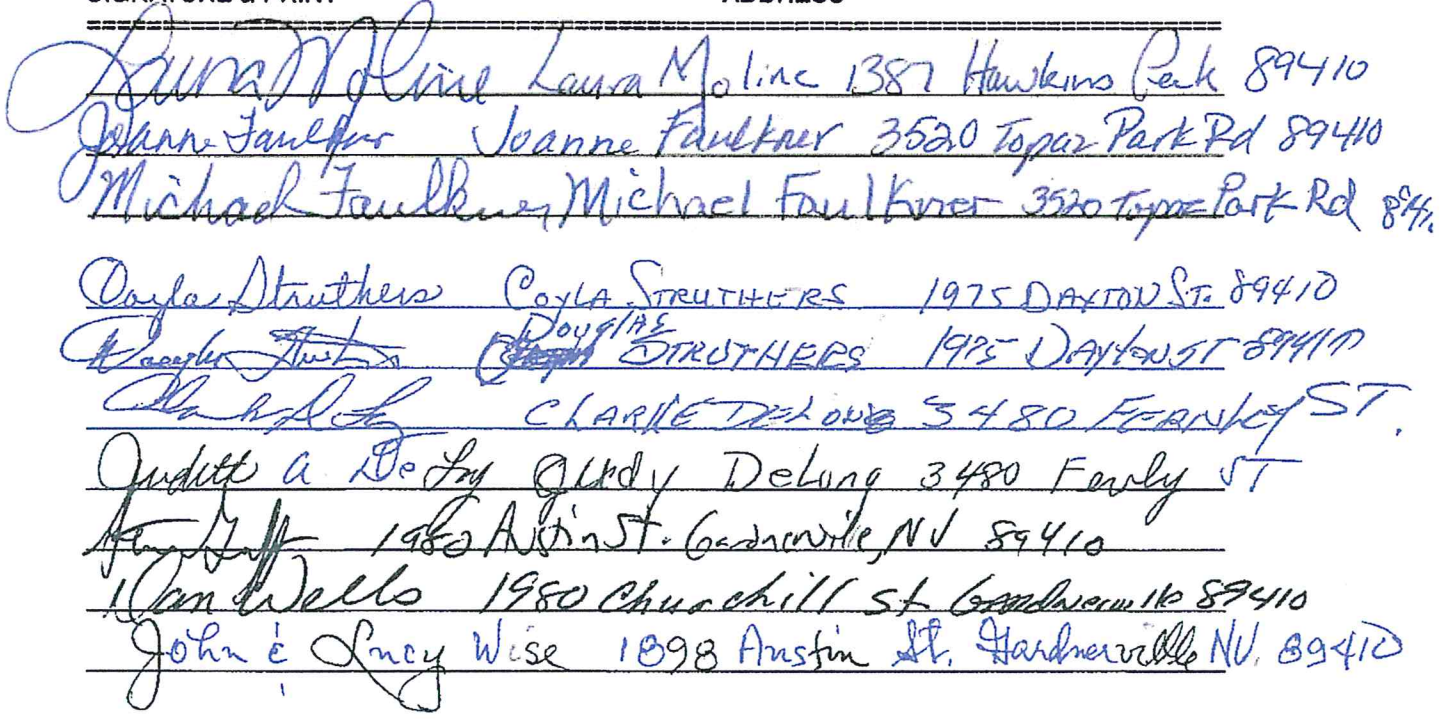 SIGNATURE & PRINT ADDRESS
Laura Moline Laura Moline 1387 Hawkins Peak 89410
Joanne Faulkner Joanne Faulkner 3520 Topaz Park Rd 89410
Michael Faulkner, Michael Faulkner 3520 Topaz Park Rd 8941
Coyla Struthers COYLA STRUTHERS 1975 DAYTON ST. 89410
Douglas Struthers DouglAS STRUTHERS 1975 DAYTON ST 89410
CLARKE DELONG 3480 FERNLEY ST.
Judith A DeLong Judy DeLong 3480 Fernly ST
1980 Austin St. Gardnerville, NV 89410
Dan Wells 1980 Churchill St Gardnerville 89410
John & Lucy Wise 1898 Austin St. Gardnerville NV. 89410